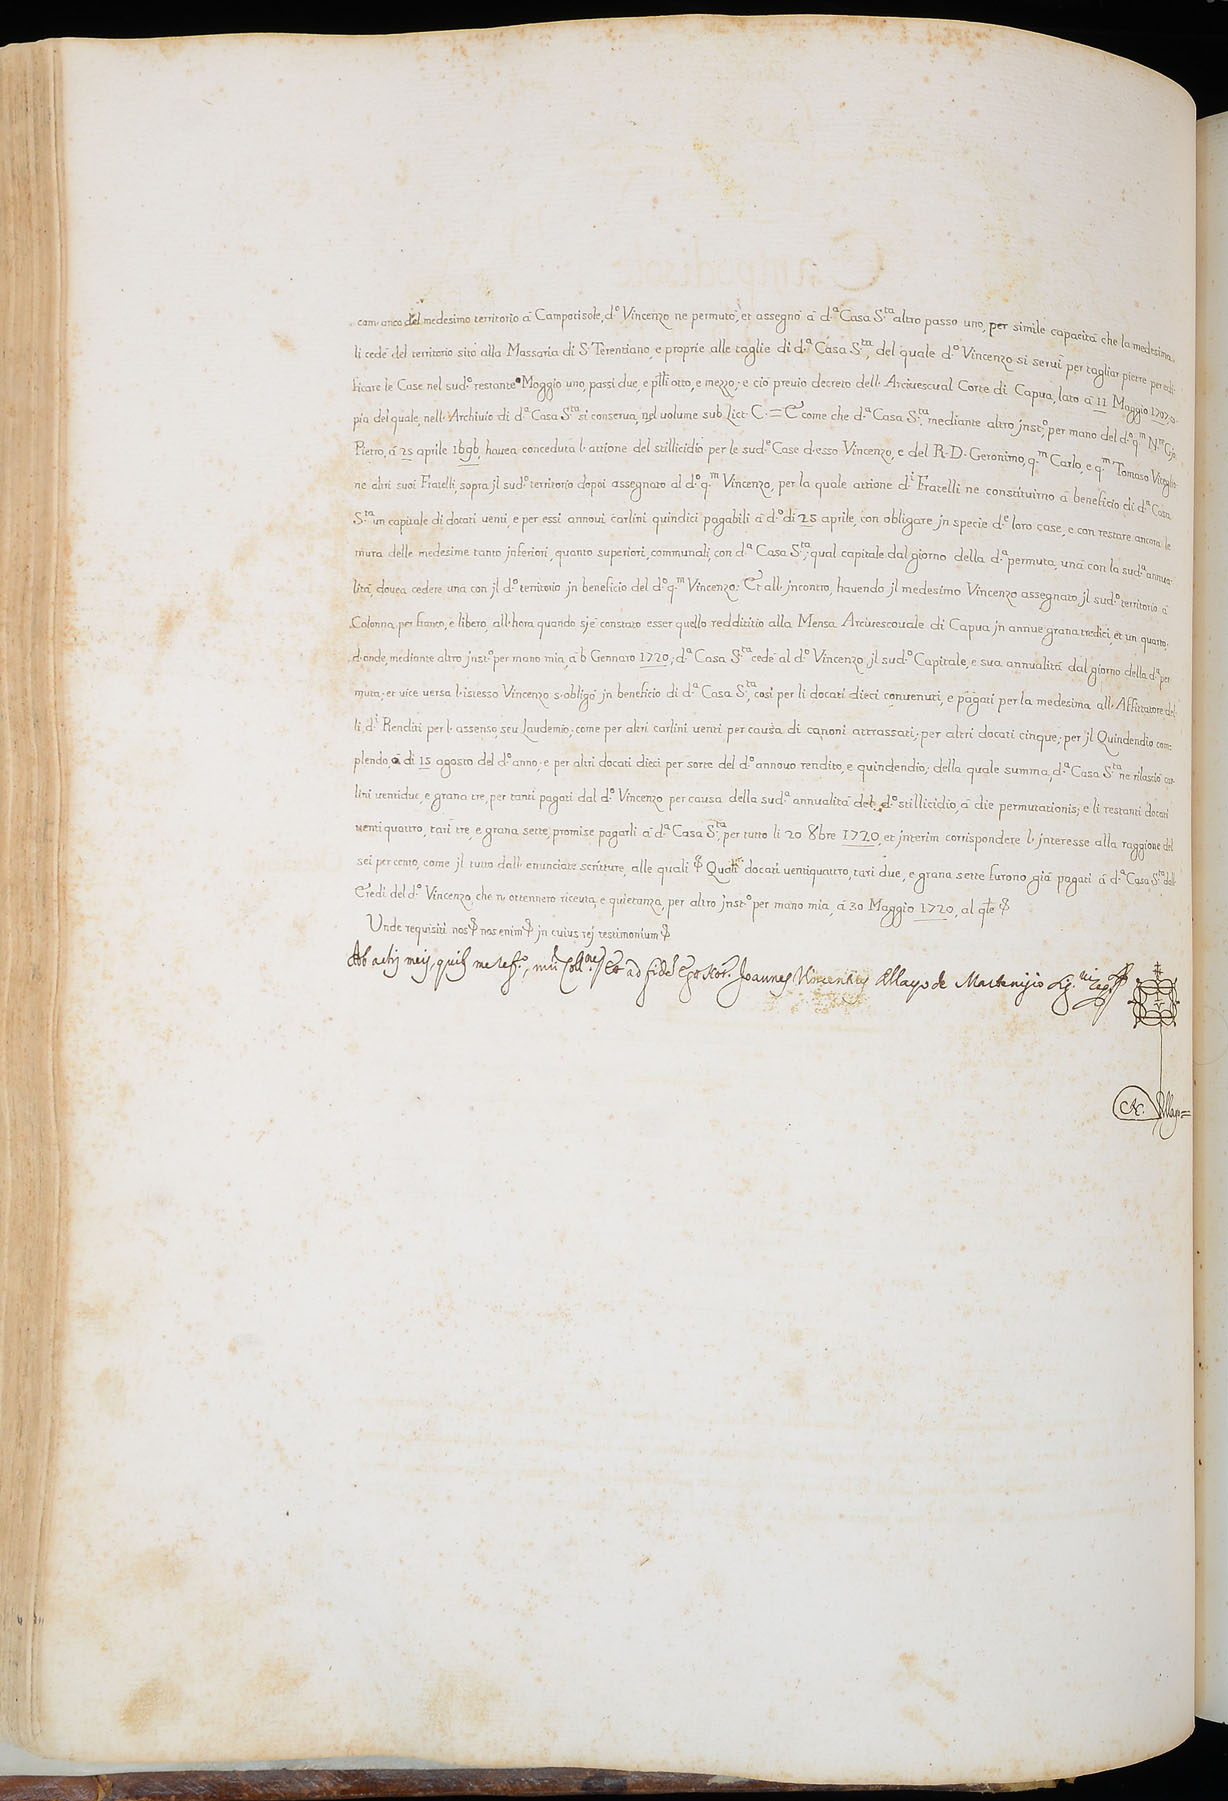 cam. arico del medesimo territorio à Campotisole, d.º Vincenzo ne permutò, et assegnò à d.ª Casa S.ta altro passo uno, per simile capacità che la medesima
li cedè del territorio sito alla Massaria di S. Terentiano, e proprie alle taglie di d.ª Casa S.ta, del quale d.º Vincenzo si servì per tagliar pietre per edi-
ficare le Case nel sud.º restante Moggio uno, passi due, e p.lli otto, e mezzo; e ciò previo decreto dell. Arcivescual Corte di Capua, lato à 11 Maggio 1707, co-
pia del quale, nell. Archivio di d.ª Casa S.ta si conserva, nel volume sub Lict. C. = E come che d.ª Casa S.ta, mediante altro jnst.º, per mano del d.º q.m N.re Gio:
Pietro, à 25 aprile 1696, havea conceduta l. attione del stillicidio per le sud.e Case d. esso Vincenzo, e del R. D. Geronimo, q.m Carlo, e q.m Tomaso Viteglio-
ne altri suoi Fratelli, sopra jl sud.º territorio dopoi assegnato al d.º q.m Vincenzo, per la quale attione d.i Fratelli ne constituirno à beneficio di d.ª Casa
S.ta un capitale di docati venti, e per essi annovi carlini quindici pagabili à d.º dì 25 aprile, con obligare jn specie d.e loro case, e con restare ancora le
mura delle medesime tanto jnferiori, quanto superiori, communali, con d.ª Casa S.ta; qual capitale dal giorno della d.ª permuta, una con la sud.ª annua-
lità, dovea cedere una con jl d.º territorio jn beneficio del d.º q.m Vincenzo: Et all. jncontro, havendo jl medesimo Vincenzo assegnato jl sud.º territorio à
Colonna per franco, e libero, all. hora quando sj è constato esser quello reddititio alla Mensa Arcivescovale di Capua jn annue grana tredici, et un quarto,
d. onde, mediante altro jnst.º per mano mia, à 6 Gennaro 1720; d.ª Casa S.ta cedè al d.º Vincenzo, jl sud.º Capitale, e sua annualità dal giorno della d.ª per-
muta; et vice versa l. istesso Vincenzo s. obligò jn beneficio di d.ª Casa S.ta, così per li docati dieci convenuti, e pagati per la medesima all. Affittatore del-
li d.i Renditi per l. assenso, seu Laudemio; come per altri carlini venti per causa di canoni attrassati; per altri docati cinque; per jl Quindendio com-
plendo, à dì 15 agosto del d.º anno; e per altri docati dieci per sorte del d.º annovo rendito, e quindendio; della quale summa, d.ª Casa S.ta ne rilasciò car-
lini ventidue, e grana tre, per tanti pagati dal d.º Vincenzo per causa della sud.ª annualità del d.º stillicidio, à die permutationis; e li restanti docati
venti quattro, tarì tre, e grana sette, promise pagarli à d.ª Casa S.ta, per tutto li 20 8bre 1720, et jnterim corrispondere l. jnteresse alla raggione del
sei per cento, come jl tutto dall. enunciate scritture, alle quali Quali docati ventiquattro, tarì due, e grana sette furono già pagati à d.ª Casa S.ta dall.
Eredi del d.º Vincenzo, che n. ottennero riceuta, e quietanza, per altro jnst.º per mano mia, à 30 Maggio 1720, al q.le
Unde requisiti nos nos enim jn cuius rej testimonium
Ab actis meis, quib. me et ad fidem Ego Not. Joannes Vincentius Ellayo de
Ellayo =